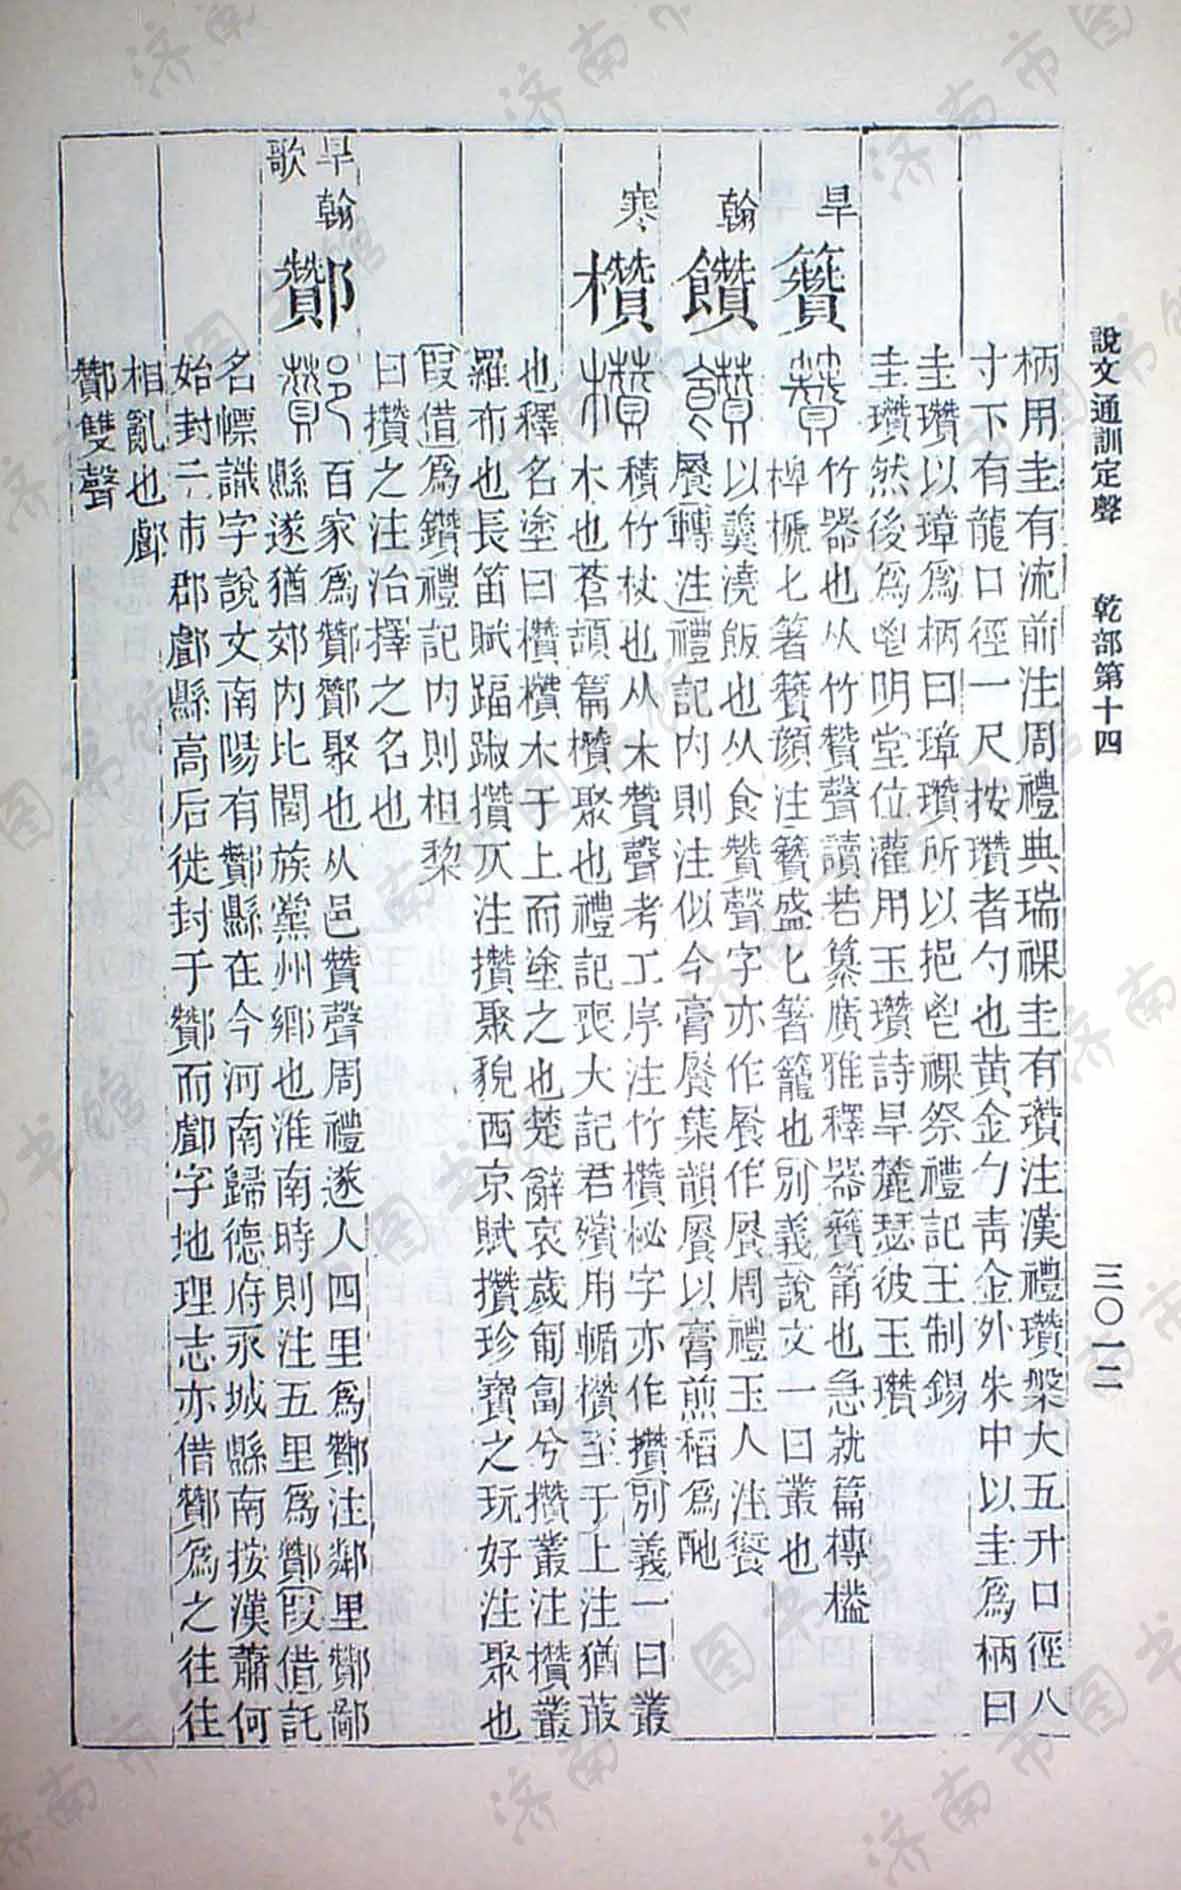 說文通訓定聲　乾部第十四　三〇一二
柄用圭有流前注周禮典瑞祼圭有瓚注漢禮瓚槃大五升口徑八
寸下有龍口徑一尺按瓚者勺也黃金勺青金外朱中以圭爲柄曰
圭瓚以璋爲柄曰璋瓚所以挹鬯祼祭禮記王制錫
圭瓚然後爲鬯明堂位灌用玉瓚詩旱麓瑟彼玉瓚
旱
籫
竹器也从竹贊聲讀若纂廣雅釋器籫筩也急就篇槫榼
椑榹匕箸籫顏注籫盛匕箸籠也別義說文一曰叢也
翰
饡
以羹澆飯也从食贊聲字亦作𩞁作𩜾周禮玉人注餈
𩞁轉注禮記內則注似今膏𩞁集韻𩞁以膏煎稻爲酏
寒
欑
積竹杖也从木贊聲考工序注竹欑柲字亦作攢別義一曰叢
木也蒼頡篇欑聚也禮記喪大記君殯用輴欑至于上注猶菆
也釋名塗曰欑欑木于上而塗之也楚辭哀歲匍匐兮攢叢注攢叢
羅布也長笛賦踾踧攢仄注攢聚貌西京賦攢珍寶之玩好注聚也
叚借爲鑽禮記內則柤棃
曰攢之注治擇之名也
旱翰
歌
酇
百家爲酇酇聚也从邑贊聲周禮遂人四里爲酇注鄰里酇鄙
縣遂猶郊內比閭族黨州鄉也淮南時則注五里爲酇叚借託
名幖識字說文南陽有酇縣在今河南歸德府永城縣南按漢蕭何
始封亍沛郡酇縣高后徙封于酇而𨝻字地理志亦借酇爲之往往
相亂也𨝻
酇雙聲